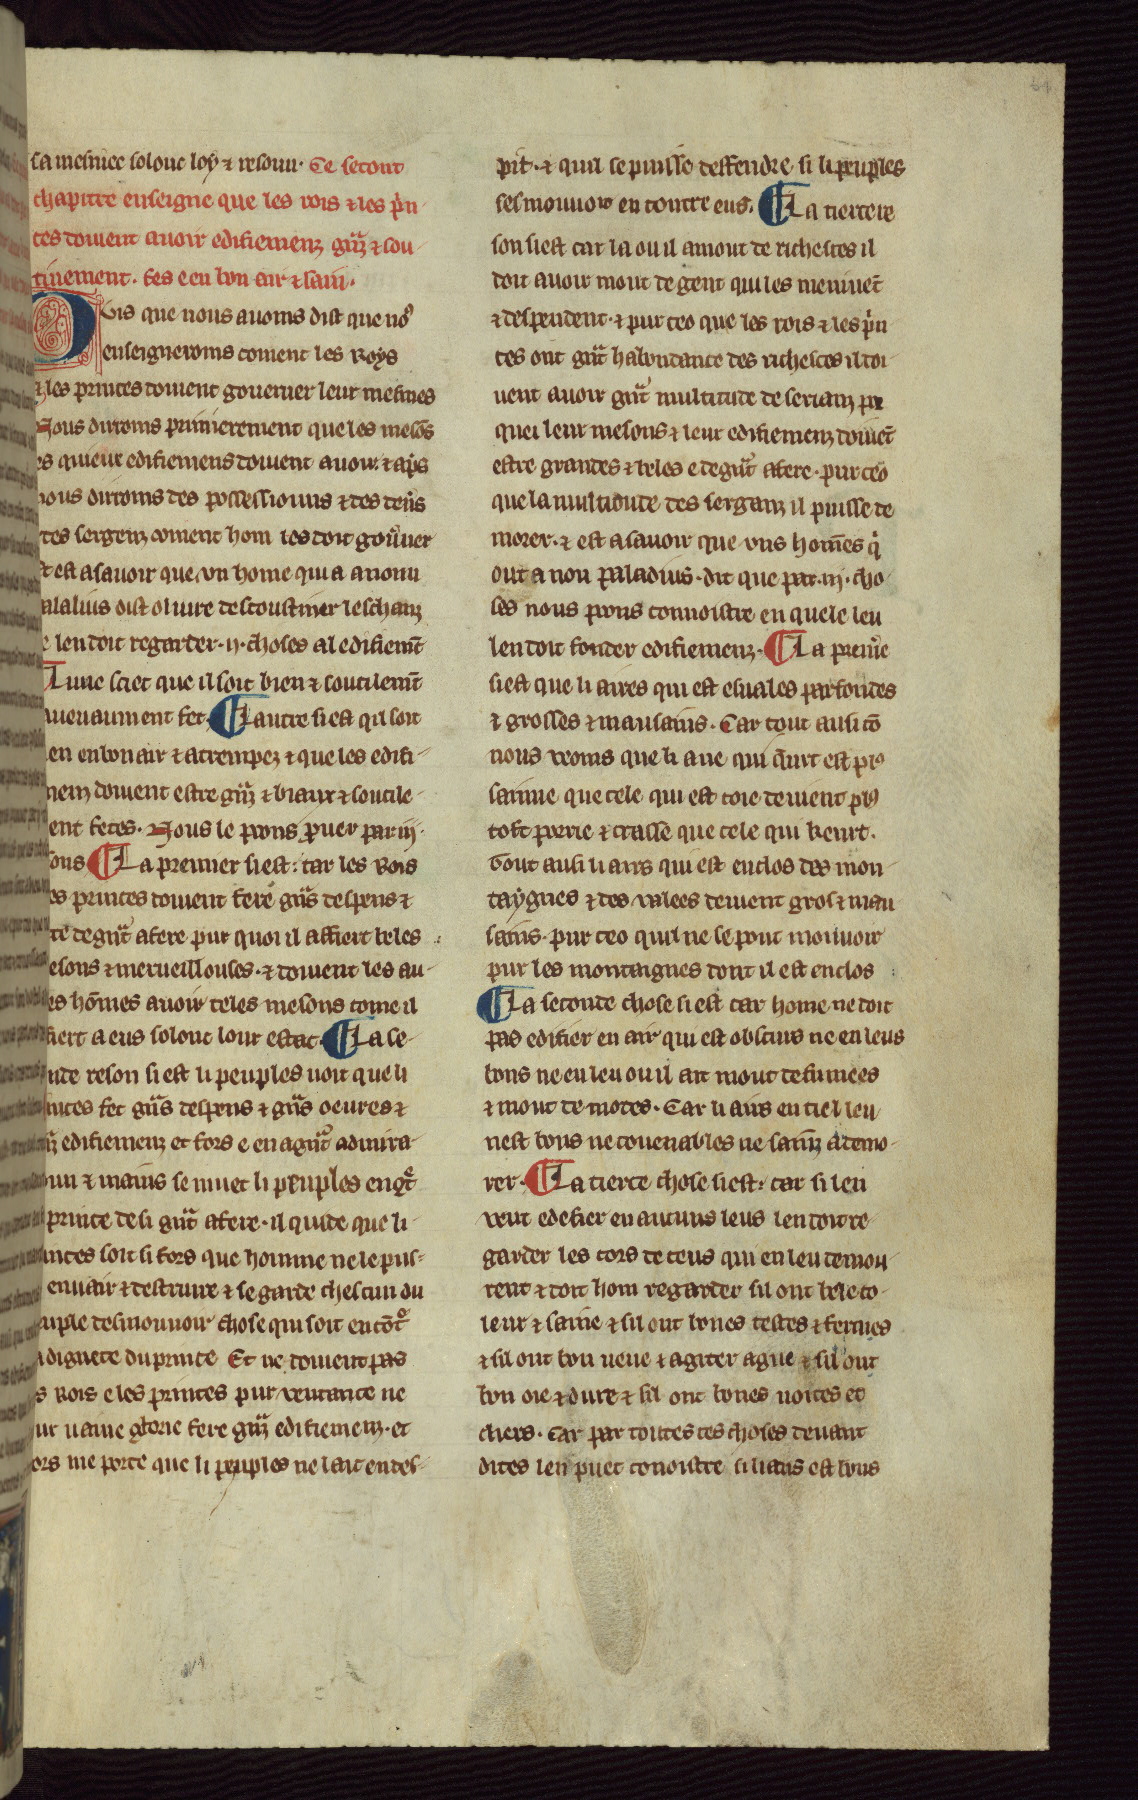 sa mesniee solonc loy ⁊ resoun. Ce secont
chapitre enseigne que les rois ⁊ les p̾in-
ces doiuent auoir edifiemenz g̾nz ⁊ sou-
tiuement. fes e en bon eir ⁊ sain.
Puis que nous auoms dist que no᷒
enseigneroms coment les Roys
⁊ les princes doiuent gouerner leur mesnies
Nous diroms primierement que les mesōs
es queux edifiemens doiuent auoir. ⁊ ap̾s
nous diroms des possessiouns ⁊ des den̾s
des sergenz coment hom les doit gou̾ner
Et est asauoir que vn home qui a anoun
palalius dist ol liure de coustiuer les chanz
e len doit regarder .ij. choses al edifiem̄t
Lune si est que il soit bien ⁊ soutilem̄t
auenaument fet. Lautre si est qil soit
en en bon air ⁊ atrempez ⁊ que les edifi-
menz doiuent estre g̾nz ⁊ biaux ⁊ soutile-
ent fetes. Nous le poons prouer par iij.
sons La premier si est: car les Rois
es princes doiuent fere g̾ns despens ⁊
de g̾nt afere pur quoi il affiert beles
esons ⁊ merueillouses. ⁊ doiuent les au-
es hōmes auoir teles mesons come il
fiert a eus solonc lour estat. La se-
nde reson si est li peuples uoit que li
inces fet g̾ns despens ⁊ g̾ns oeures ⁊
g̾nz edifiemenz et fors e en a g̾nt admira-
oun ⁊ mains se muet li peuples en qt̾
prince de si g̾nt afere. il quide que li
inces soit si fors que homme ne le puis-
enuair ⁊ destruire ⁊ se garde chescun du
uple desmouuoir chose qui soit encōt̾
a dignete du prince Et ne doiuent pas
s Rois e les princes pur ventance ne
ur uaine glorie fere g̾nz edifiemenz. et
ors me porte que li peuples ne lait en des-
pit. ⁊ quil se puisse deffendre si li peuples
ses mouuoir en contre eus. La tierce re
son si est car la ou il a mout de richesces il
doit auoir mout de gent qui les meniuēt
⁊ despendent. ⁊ pur ceo que les rois ⁊ les p̾in
ces ont g̾nt habundance des richesces il doi-
uent auoir g̾nt multitude de serianz par
quei leur mesons ⁊ leur edifiemenz doiuēt
estre grandes ⁊ beles e de g̾nt afere. pur ceo
que la multitude des serganz il puisse de
morer. ⁊ est asauoir que vns homes q̾
out a non paladius. dit que par .iij. cho-
ses nous poons connoistre en quele leu
len doit fonder edifiemenz. La prem̾e
si est que li aires qui est es uales parfondes
⁊ grosses ⁊ mausains. Car tout ausi cō
nous veoms que li aue qui q̾urt est pl᷒
sainne que cele qui est coie deuient pl᷒
tost porrie ⁊ crasse que cele qui keurt.
Tout ausi li airs qui est enclos des mon-
taygnes ⁊ des valees deuient gros ⁊ mau
sains. pur ceo quil ne se pout mouuoir
pur les montaignes dont il est enclos
La seconde chose si est car home ne doit
pas edifier en air qui est obscurs ne en leus
bons ne en leu ou il ait mout de fumees
⁊ mout de motes. Car li airs en tiel leu
nest bons ne couenables ne sainz a demo-
rer. La tierce chose si est: car si len
veut edefier en aucuns leus len doit re-
garder les cors de ceus qui en leu demou-
rent ⁊ doit hom regarder sil ont bele co-
leur ⁊ saine ⁊ sil ont bones testes ⁊ fermes
⁊ sil ont bon ueue ⁊ agiter ague ⁊ sil ont
bon oie ⁊ dure ⁊ sil ont bones uoices et
clers. Car par toutes ces choses deuant
dites len puet conoistre si li airs est bons